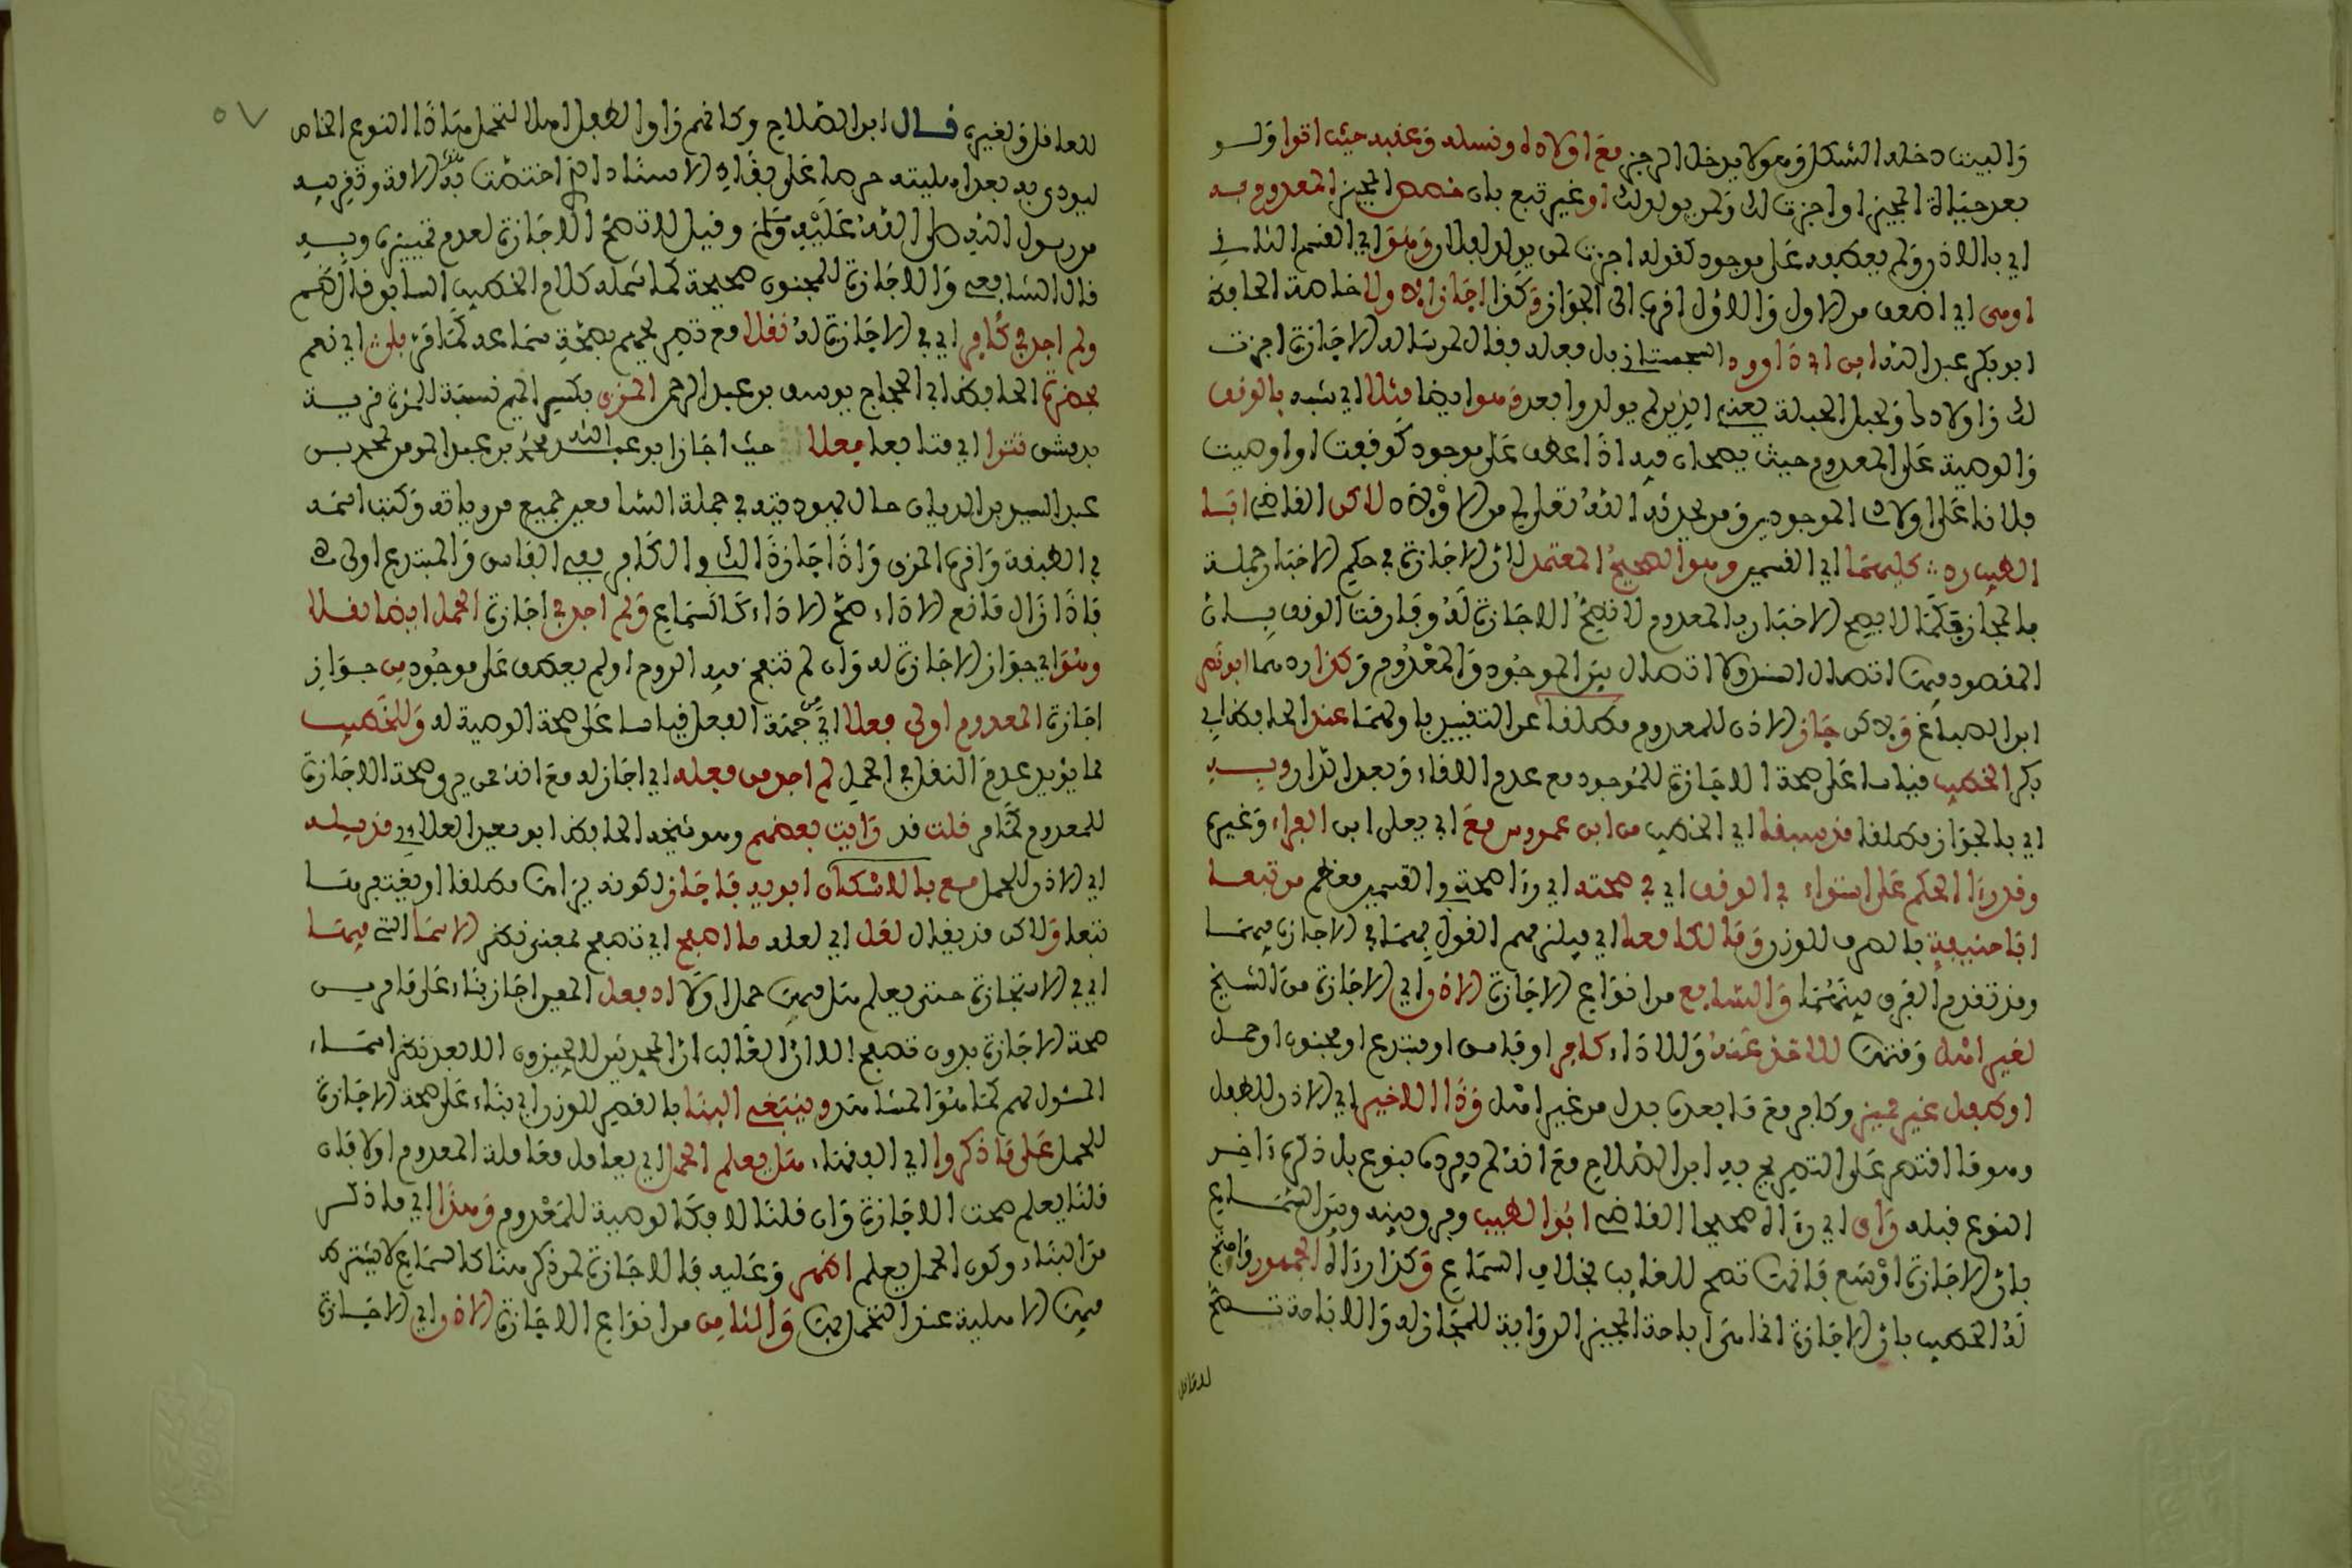 والبيت دخله الشكل وهو لا يدخل الرجز مع اولاده ونسله وعقبه حيث اتوا ولو
بعد حياة المجيز او اجزت لك ولمن يولد لك او غير تبع بان خصص المجيز المعدوم به
اي بالاذن ولم يعطفه على موجود كقوله اجزت لمن يولد لفلان وهو اي القسم الثاني
اوهى اي اضعف من الاول والاول اقرب الى الجواز وكذا اجازابن ولا خاصة الحافظ
ابو بكر عبد الله ابن ابي داوود السجستاني بل فعله فقال لمن ساله الاجازة اجزت
لك ولاولادك ولحبل الحبلة يعني الذين لم يولدوا بعد وهو ايضا مثلا اي شبه بالوقف
والوصية على المعدوم حيث يصحان فيه اذا عطف على موجود كوقفت او اوصيت
فلانا على اولادي الموجودين ومن يحدثه الله تعلى لي من الاولاد لاكن القاضي ابا
الطيب رد كليهما اي القسمين وهو الصحيح المعتمد لان الاجازة في حكم الاخبار جملة
بالمجاز فكما لا يصح الاخبار بالمعدوم لا تصح الاجازة له وفارقت الوقف بان
المقصود فيها اتصال السند ولا اتصال بين الموجود والمعدوم وكذا ردهما ابو نصر
ابن الصباغ ولاكن جاز الاذن للمعدوم مطلقا عن التقييد باولهما عند الحافظ ابي
بكر الخطيب قياسا على صحة الاجازة للموجود مع عدم اللقاء وبعد الدارويه
اي بالجواز مطلقا قد سبقا اي الخطيب من ابن عمروس مع ابي يعلى ابن الفراء وغيرهم
وقد رءا الحكم على استواء في الوقف اي في صحته اي رءا صحته في القسمين معظم من تبعا
ابا حنيفة بالصرف للوزن ومالكا معا اي فيلزمهم القول بهما في الاجازة فيهما
وقد تقدم الفرق بينهما والسابع من انواع الاجازة الاذن اي الاجازة من الشيخ
لغير اهل وقتها للاخذ عنه وللاداء كافر او فاسق او مبتدع او مجنون او حمل
او طفل غير مميز وكافر مع ما بعده بدل من غير اهل وذا الاخير اي الاذن للطفل
وهو ما اقتصر على التصريح به ابن الصلاح مع انه لم يفرده بنوع بل ذكره ءاخر
النوع قبله رأى اي رءاه صحيحا القاضي ابو الطيب وفرق بينه وبين السماع
بان الاجازة اوسع فانها تصح للغايب بخلاف السماع وكذا رءاه الجمهور واحتج
له الخطيب بان الاجازة انما هي اباحة المجيز الرواية للمجاز له والاباحة تصح
للعاقل
٥٧
للعاقل ولغيره قال ابن الصلاح وكانهم رأوا الطفل اهلا لتحمل هاذا النوع الخاص
ليودي به بعد اهليته حرصا على بقاء الاسناد الذي اختصت به هذه الامة وتقريبه
من رسول الله صلى الله عليه وسلم وقيل لا تصح الاجازة لعدم تمييزه وبه
قال الشافعي والاجازة للمجنون صحيحة كما شمله كلام الخطيب السابق قال الناظم
ولم اجد في كافر اي في الاجازة له نقلا مع تصريحهم بصحة سماعه كما مر بلى اي نعم
بحضرة الحافظ ابي الحجاج يوسف بن عبد الرحمن المزي بكسر الميم نسبة للمزة قرية
بدمشق تترا اي متابعا فعلا حيث اجاز ابو عبد الله محمد بن عبد المومن لمحمد بن
عبد السيد بن الديان حال يهوديته في جملة السامعين جميع مروياته وكتب اسمه
في الطبقة واقره المزي واذا اجاز ذالك في الكافر ففي الفاسق والمبتدع اولى
فاذا زال مانع الاداء صح الاداء كالسماع ولم اجد في اجازة الحمل ايضا نقلا
وهو اي جواز الاجازة له وان لم تنفخ فيه الروح او لم يعطف على موجود من جواز
اجازة المعدوم اولى فعلا اي من جهة الفعل قياسا على صحة الوصية له وللخطيب
مما يؤيد عدم النقل في الحمل لم اجد من فعله اي اجاز له مع انه ممن يرى صحة الاجازة
للمعدوم كما مر قلت قد رأيت بعضهم وهو شيخه الحافظ ابو سعيد العلائي قد سئله
اي الاذن للحمل مع بالاسكان ابويه فاجاز لكونه يراها مطلقا او يغتفرها
تبعا ولاكن قد يقال لعل اي لعله ما اصفح اي تصفح بمعنى نظر الاسما التي فيها
اي في الاستجازة حتى يعلم هل فيها حمل اولا اذ فعل المعير اجاز بناء على ما مر من
صحة الاجازة بدون تصفح الا ان الغالب ان المحدثين لا يجيزون الا بعد نظر اسماء
المسئول لهم كما هو المشاهد وينبغي البنا بالقصر للوزن اي بناء على صحة الاجازة
للحمل على ما ذكروا اي الفقهاء هل يعلم الحمل اي يعامل معاملة المعدوم اولا فان
قلنا يعلم صحت الاجازة وان قلنا لا فكالوصية للمعدوم وهذا اي ما ذكر
من البناء وكون الحمل يعلم اظهر وعليه فالاجازة لمن ذكر هنا كالسماع لا يشترط
فيها الاهلية عند التحمل بها والثامن من انواع الاجازة الاذن اي الاجازة